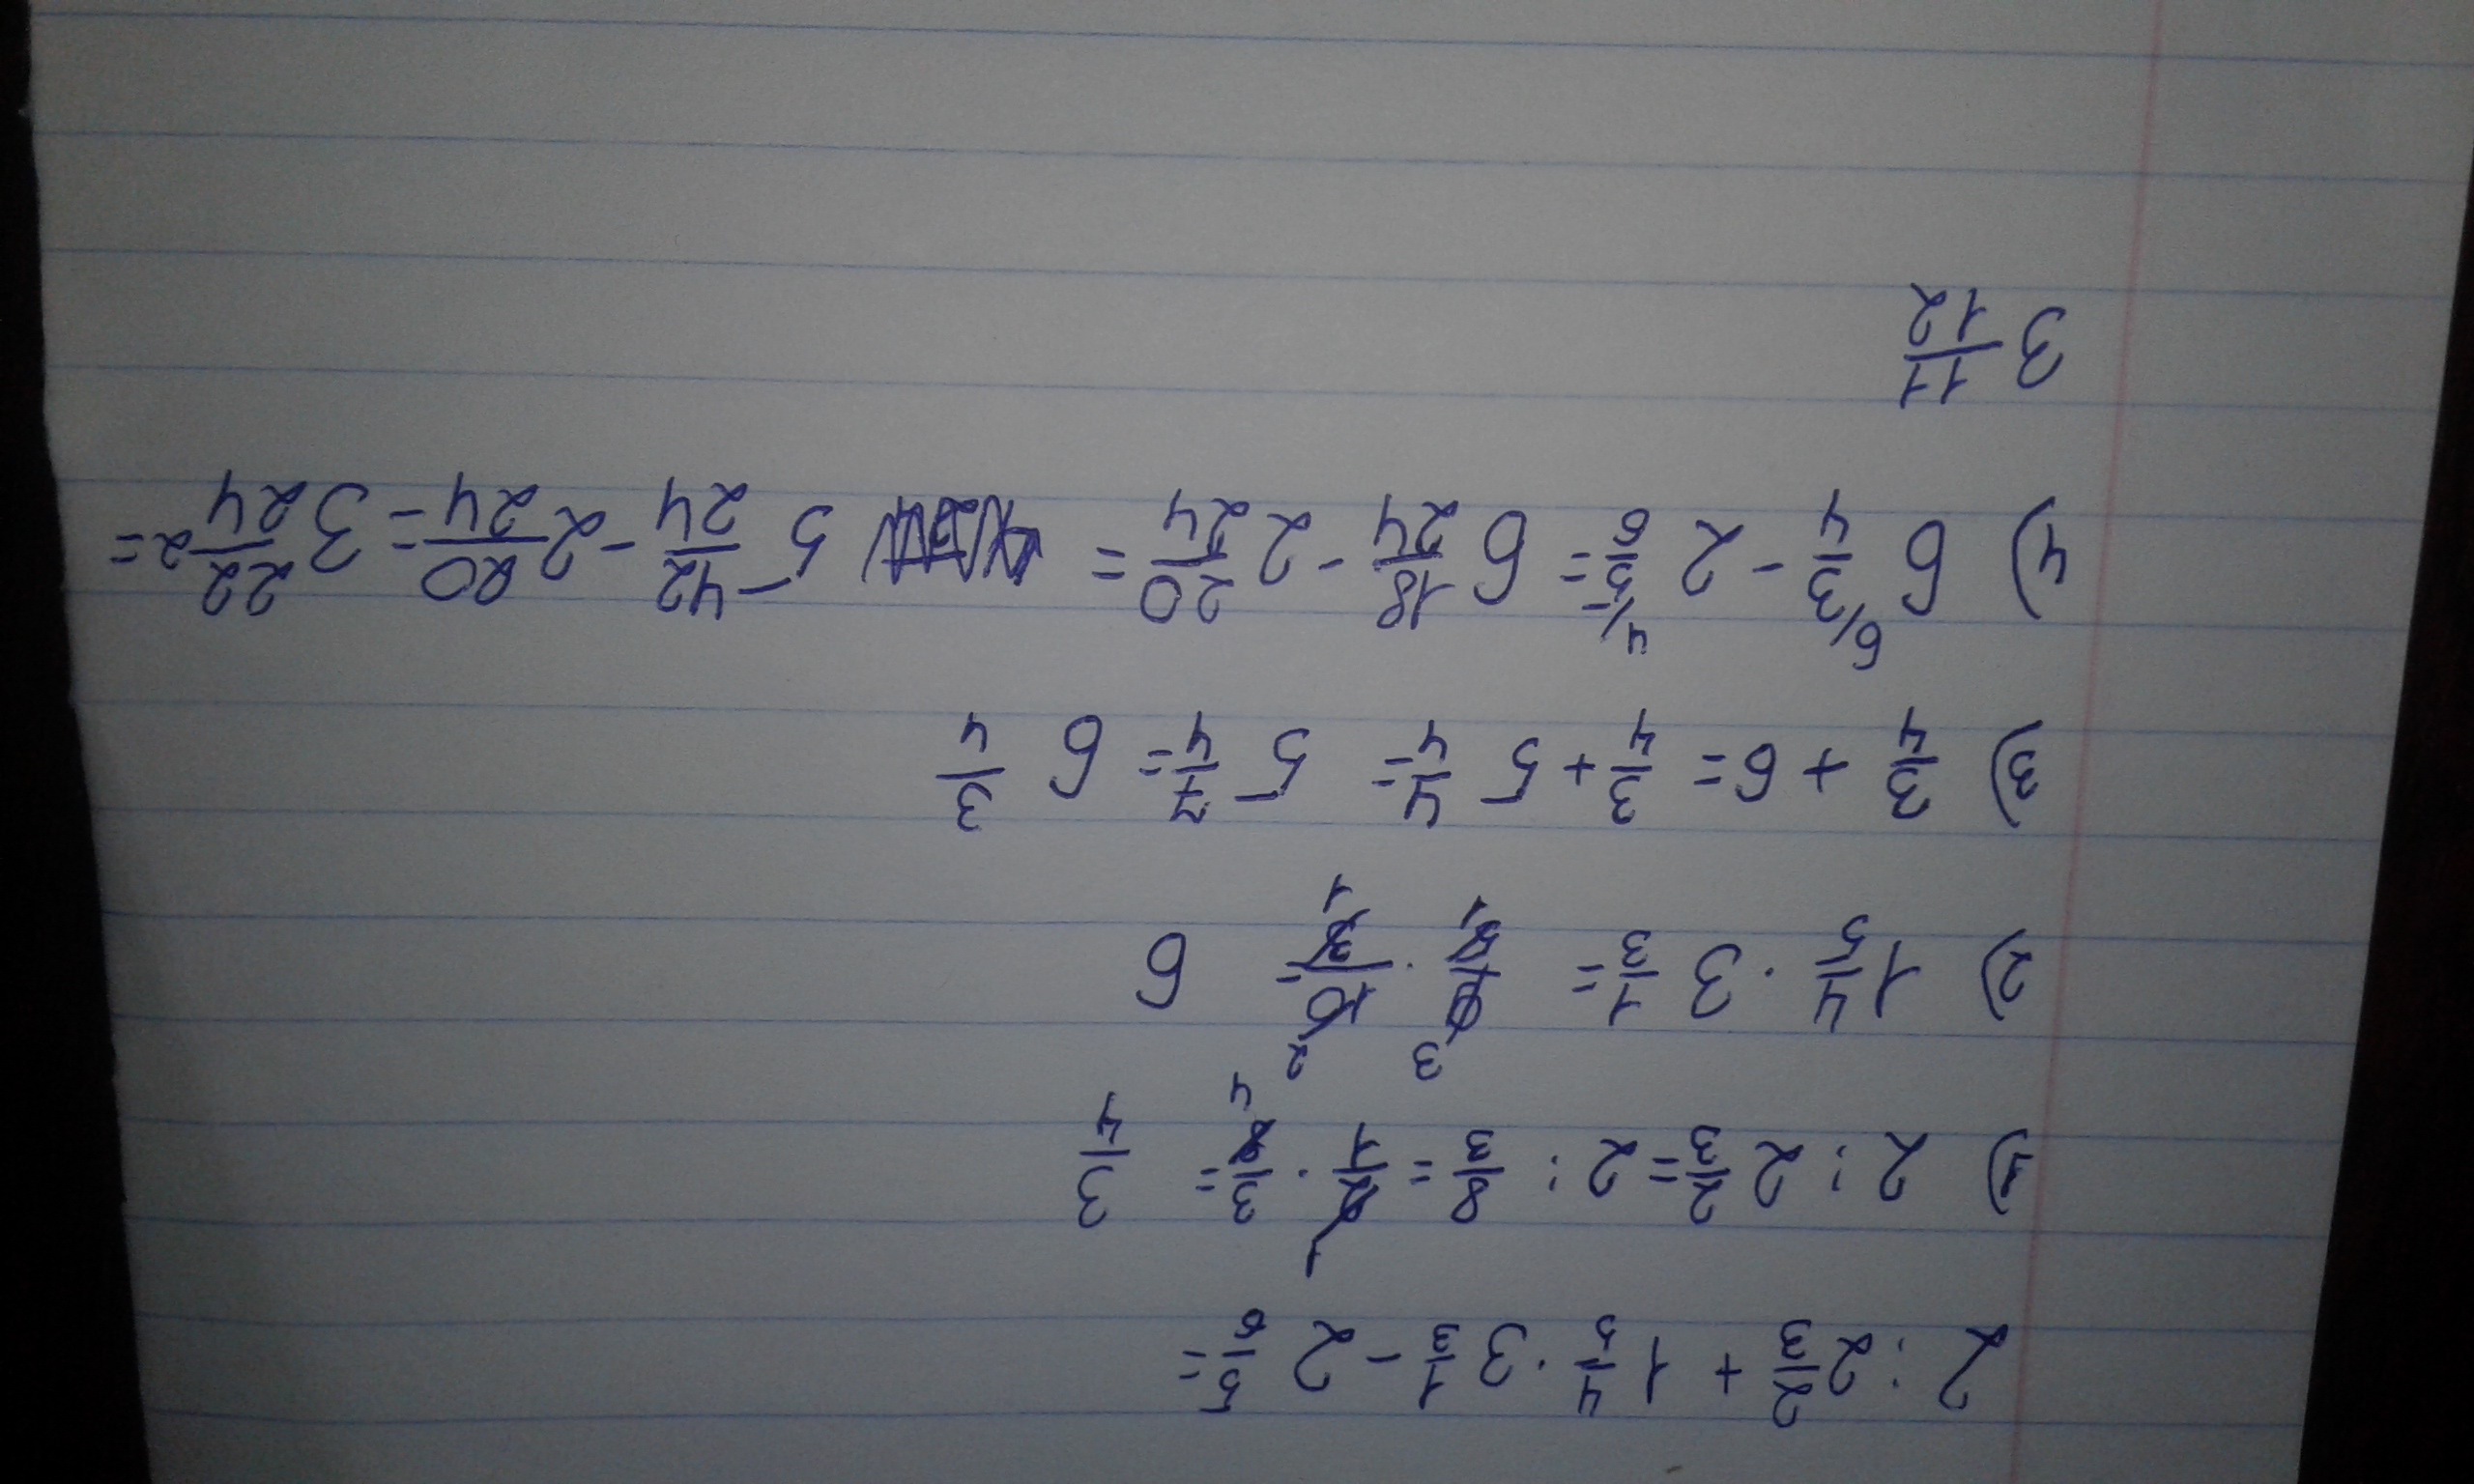 2 : 2 2/3 + 1 4/5 · 3 1/3 - 2 5/6 =
1) 2 : 2 2/3 = 2 : 8/3 = 2/1 · 3/8 = 3/4
2) 1 4/5 · 3 1/3 = 9/5 · 10/3 = 6
3) 3/4 + 6 = 3/4 + 5 4/4 = 5 7/4 = 6 3/4
4) 6 3/4 - 2 5/6 = 6 18/24 - 2 20/24 = 5 42/24 - 2 20/24 = 3 22/24 =
3 11/12